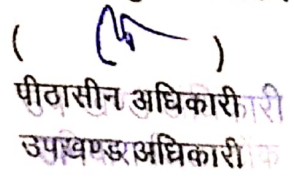 ( )
पीठासीन अधिकारी
उपखण्ड अधिकारी